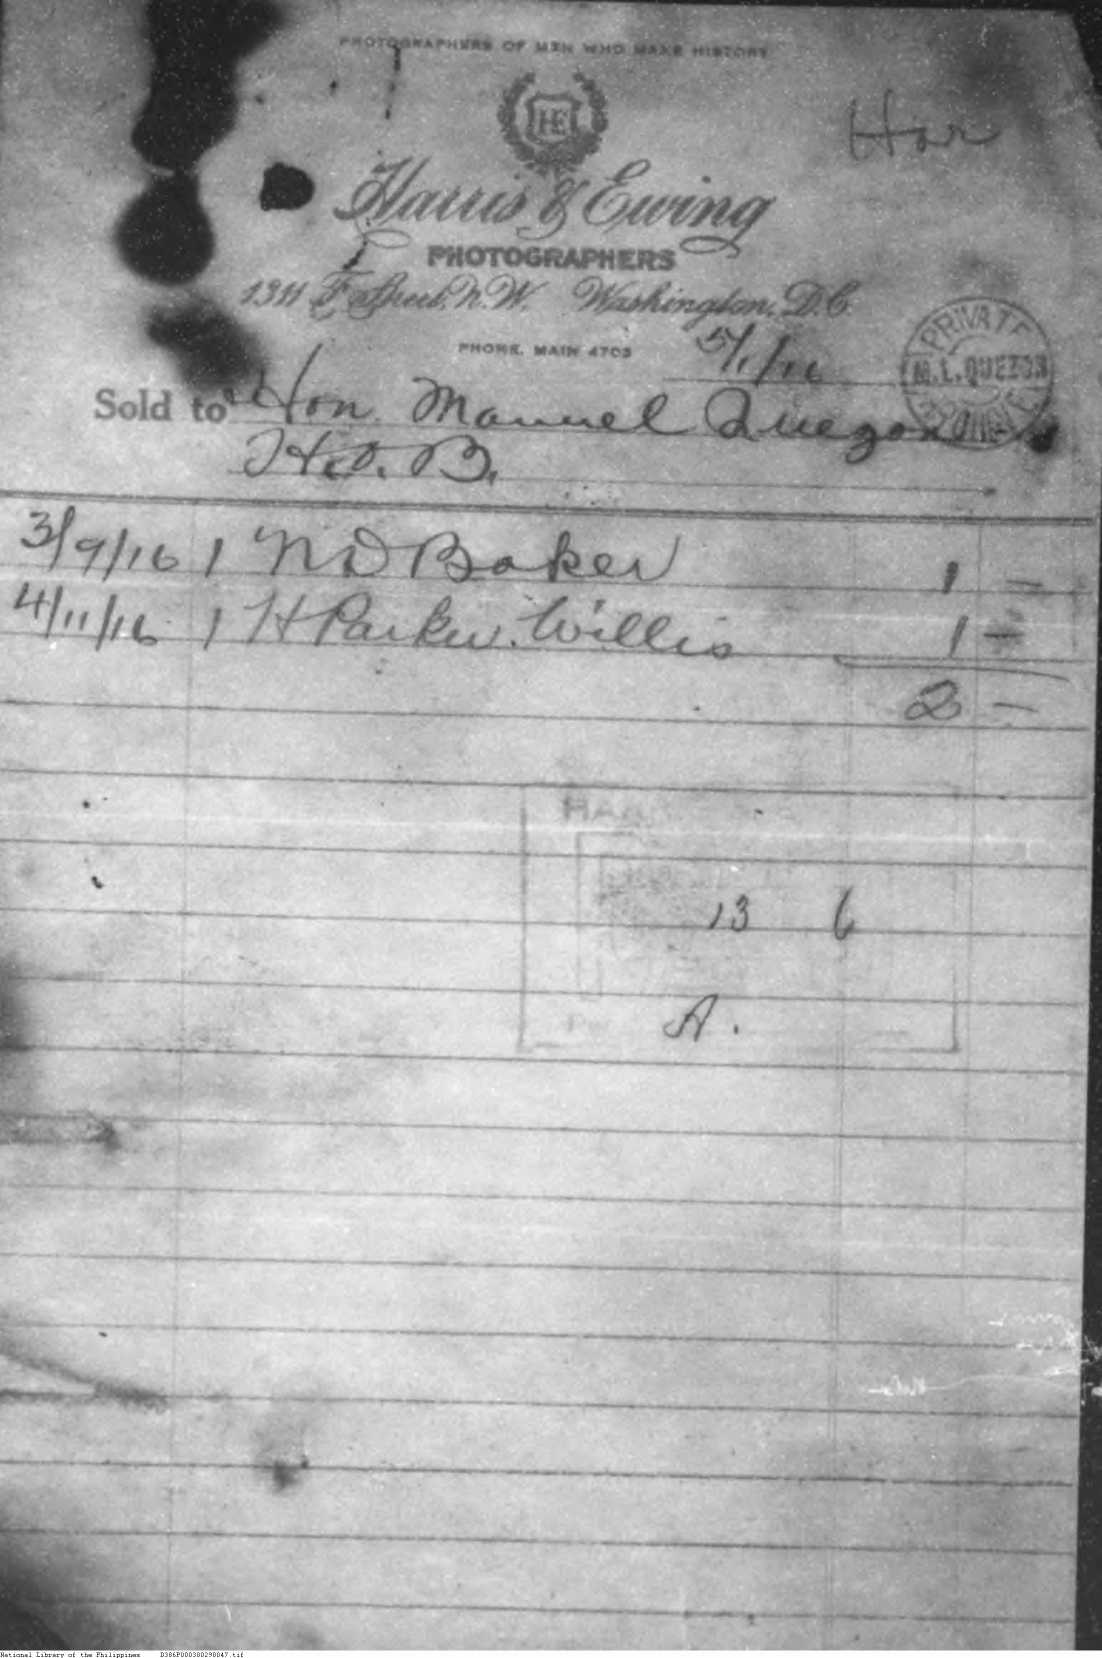 PHOTOGRAPHERS OF MEN WHO MAKE HISTORY
HE
Har
Harris & Ewing
PHOTOGRAPHERS
1311 F Street, N.W. Washington, D.C.
PHONE, MAIN 4703
5/1/16
PRIVATE
M. L. QUEZON
Sold to Hon. Manuel Quezon
H.O.B.
3/9/16 1 N D Baker 1 —
4/11/16 1 H Parker Willis 1 —
2 —
HARR
13 6
Per A.
National Library of the Philippines D386P000300290047.tif